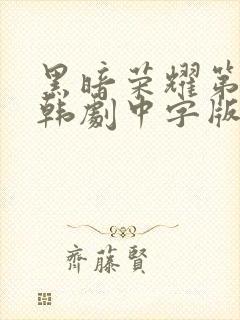 黑暗荣耀第
韩劇中字版
齊藤賢